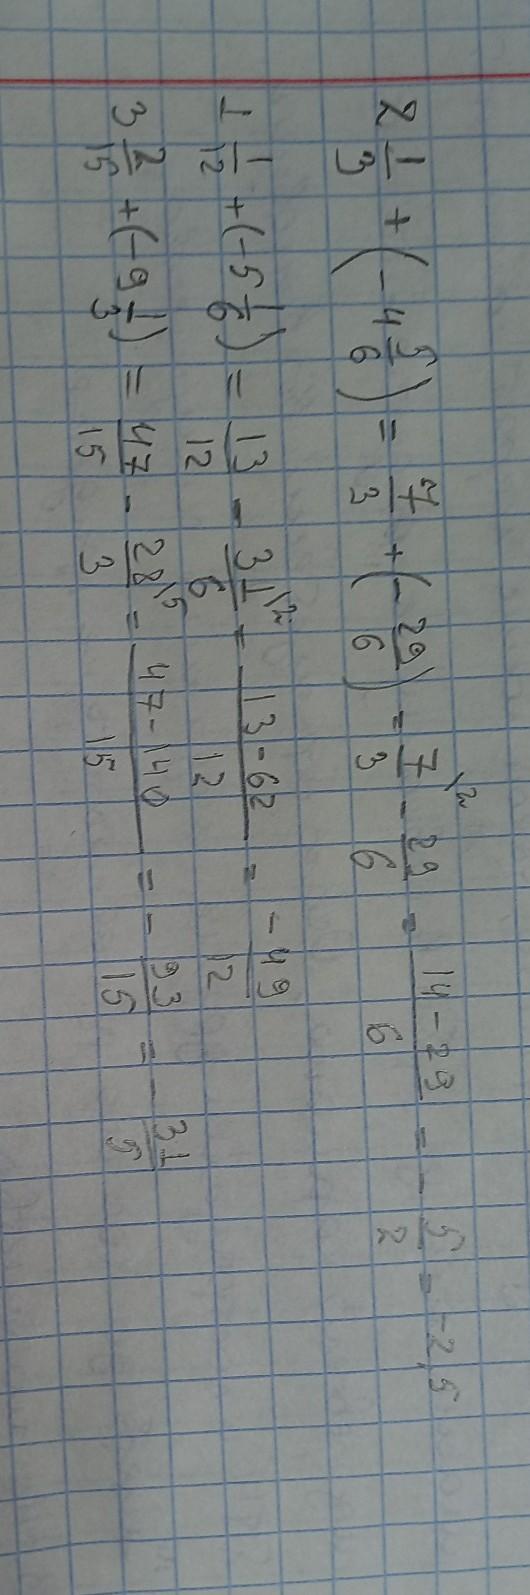 2 1/3 + (-4 5/6) = 7/3 + (-29/6) = 7/3 \2 - 29/6 = 14-29/6 = - 5/2 = -2,5
1 1/12 + (-5 1/6) = 13/12 - 31/6 \2 = 13-62/12 = - 49/12
3 2/15 + (-9 1/3) = 47/15 - 28/3 \5 = 47-140/15 = - 93/15 = - 31/5